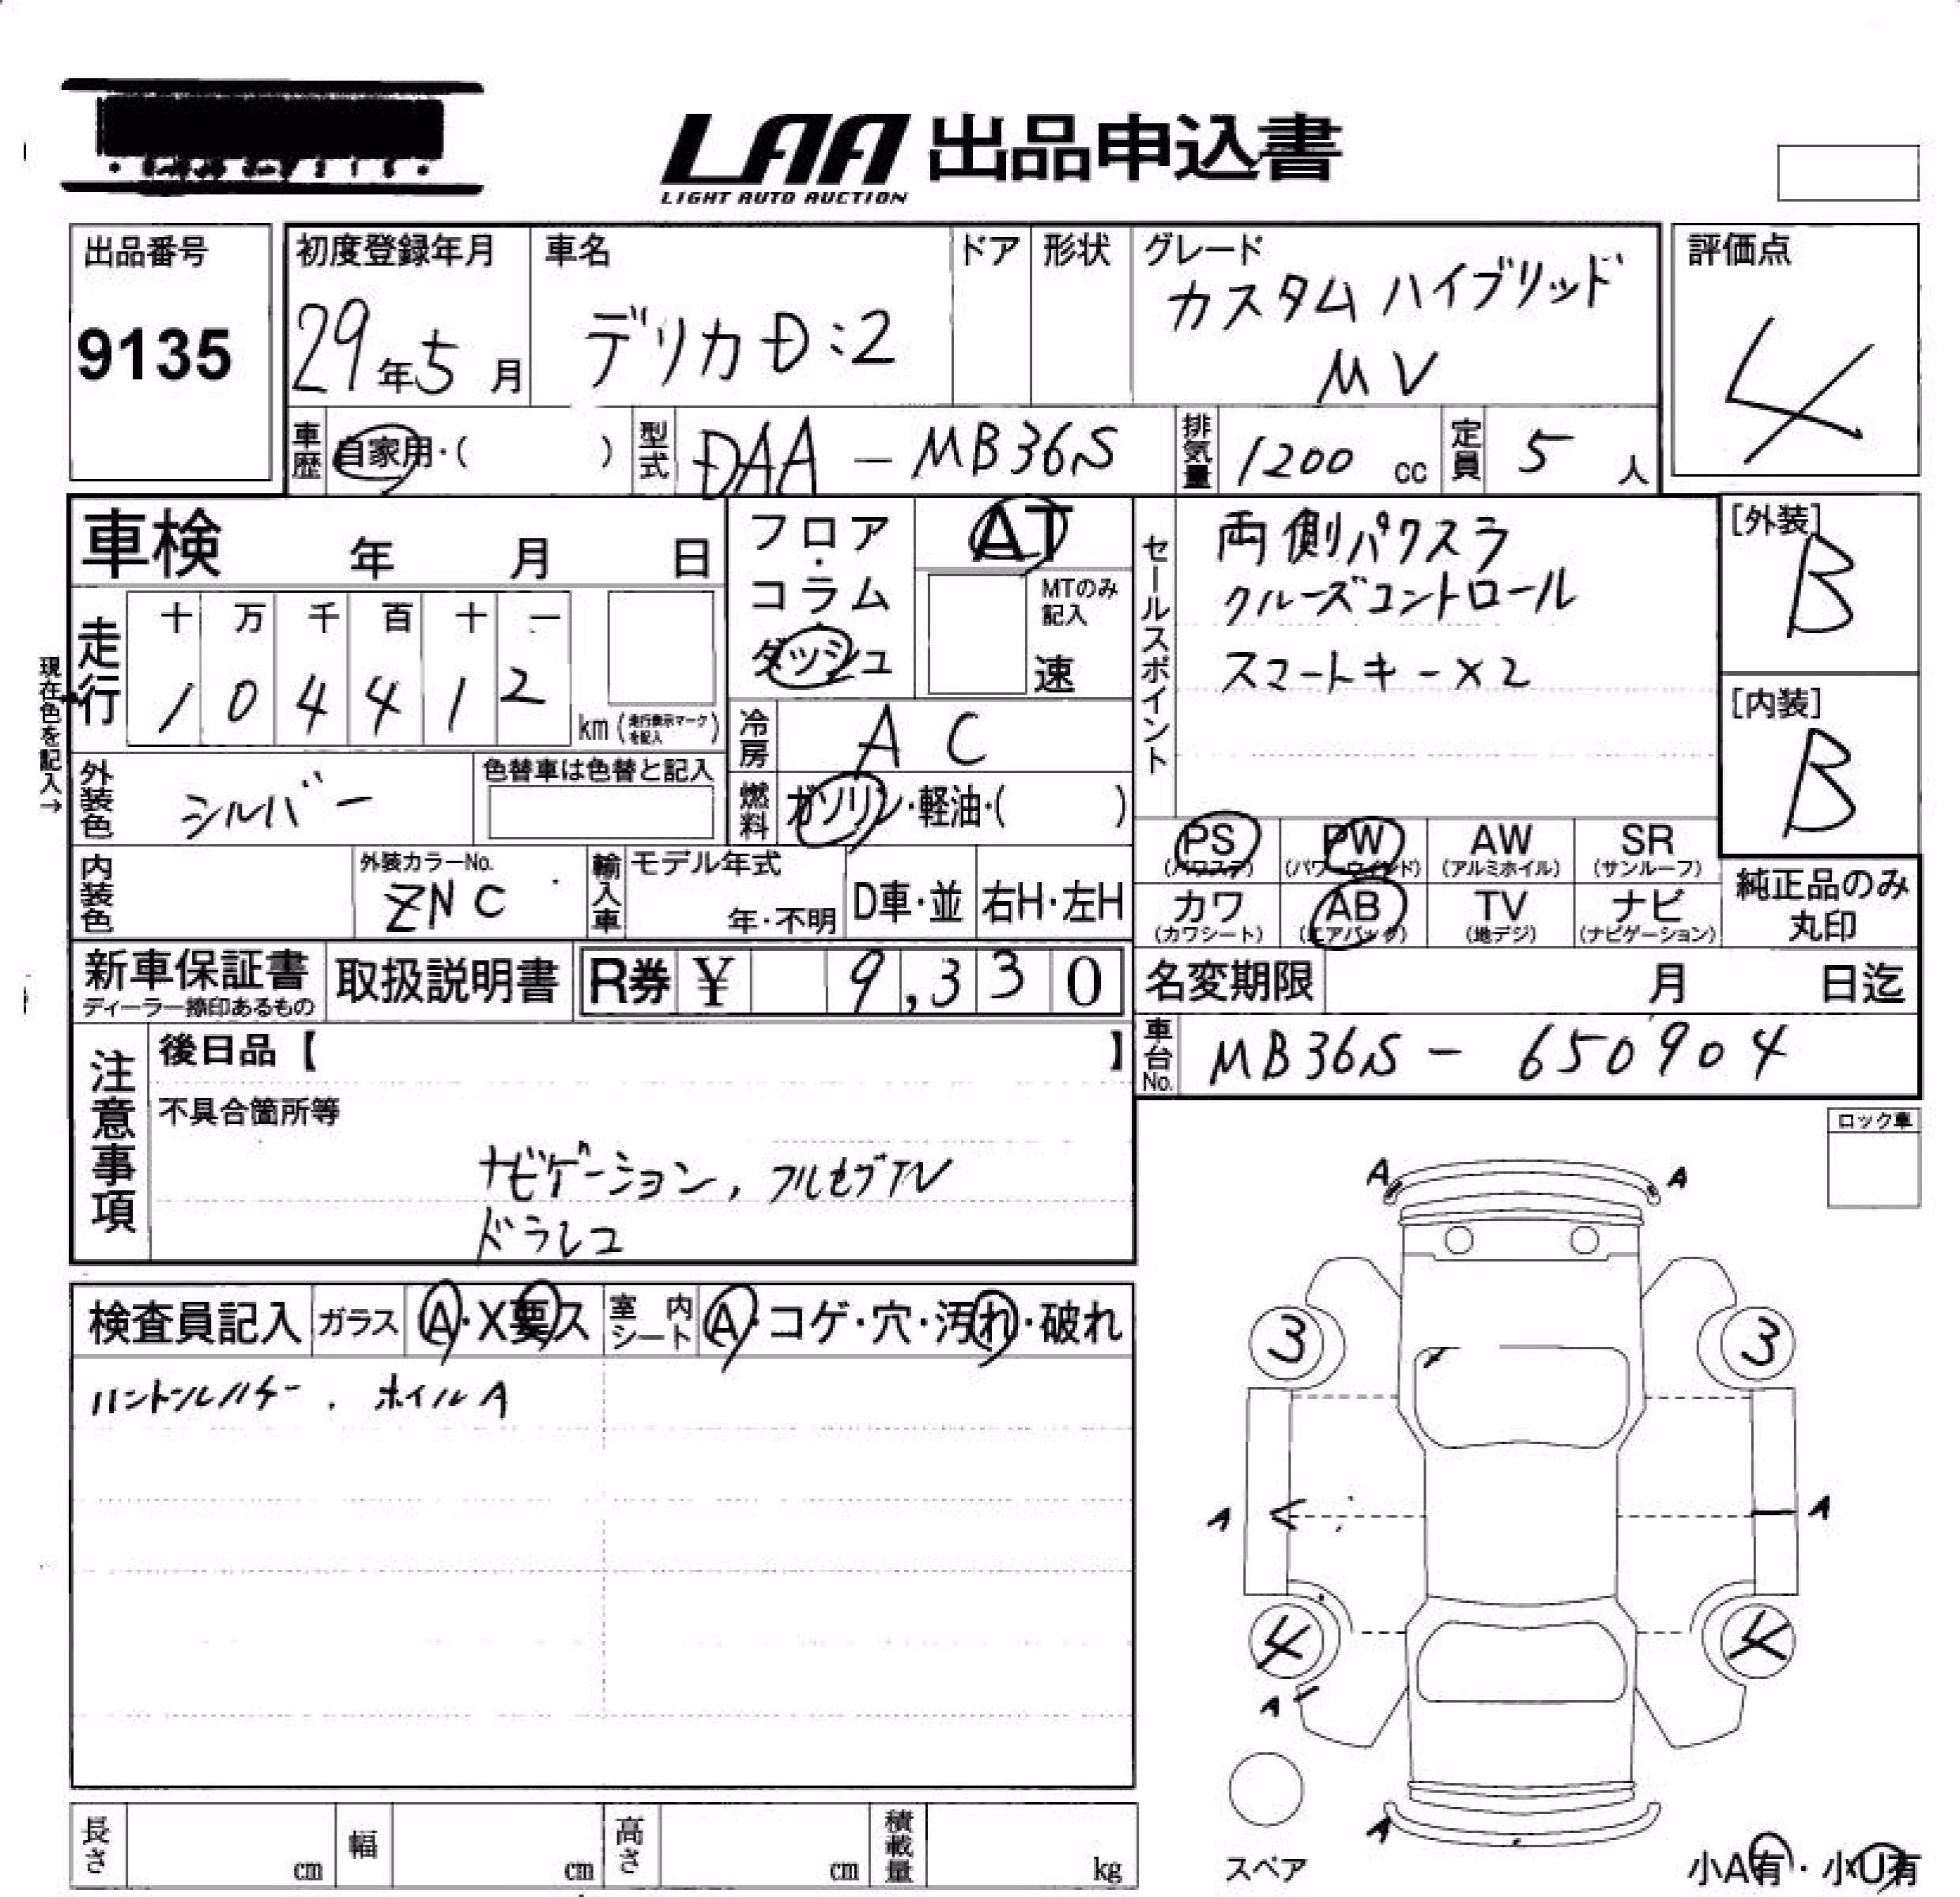 LAA 出品申込書
LIGHT AUTO AUCTION
出品番号
9135
初度登録年月
29年5月
車名
デリカD:2
ドア
形状
グレード
カスタム ハイブリッド
MV
評価点
4
車歴
自家用・( )
型式
DAA - MB36S
排気量
1200 cc
定員
5 人
車検 年 月 日
フロア・コラム・ダッシュ
AT
MTのみ記入
速
セールスポイント
両側パワスラ
クルーズコントロール
スマートキー×2
[外装]
B
[内装]
B
現在色を記入→
走行
十 万 千 百 十 一
1 0 4 4 1 2
km (走行表示マークを記入)
冷房
AC
外装色
シルバー
色替車は色替と記入
燃料
ガソリン・軽油・( )
PS (パワステ)
PW (パワーウインド)
AW (アルミホイル)
SR (サンルーフ)
カワ (カワシート)
AB (エアバッグ)
TV (地デジ)
ナビ (ナビゲーション)
純正品のみ
丸印
内装色
外装カラーNo.
ZNC
輸入車
モデル年式
年・不明
D車・並
右H・左H
新車保証書
ディーラー捺印あるもの
取扱説明書
R券 ¥ 9,330
名変期限 月 日迄
車台No.
MB36S - 650904
注意事項
後日品【 】
不具合箇所等
ナビゲーション, フルセグTV
ドラレコ
ロック車
検査員記入
ガラス
A・X要ス
室内シート
A・コゲ・穴・汚れ・破れ
ホイルA
A A
3 3
A A
4 4
A
A
スペア
小A有・小U有
長さ cm
幅 cm
高さ cm
積載量 kg